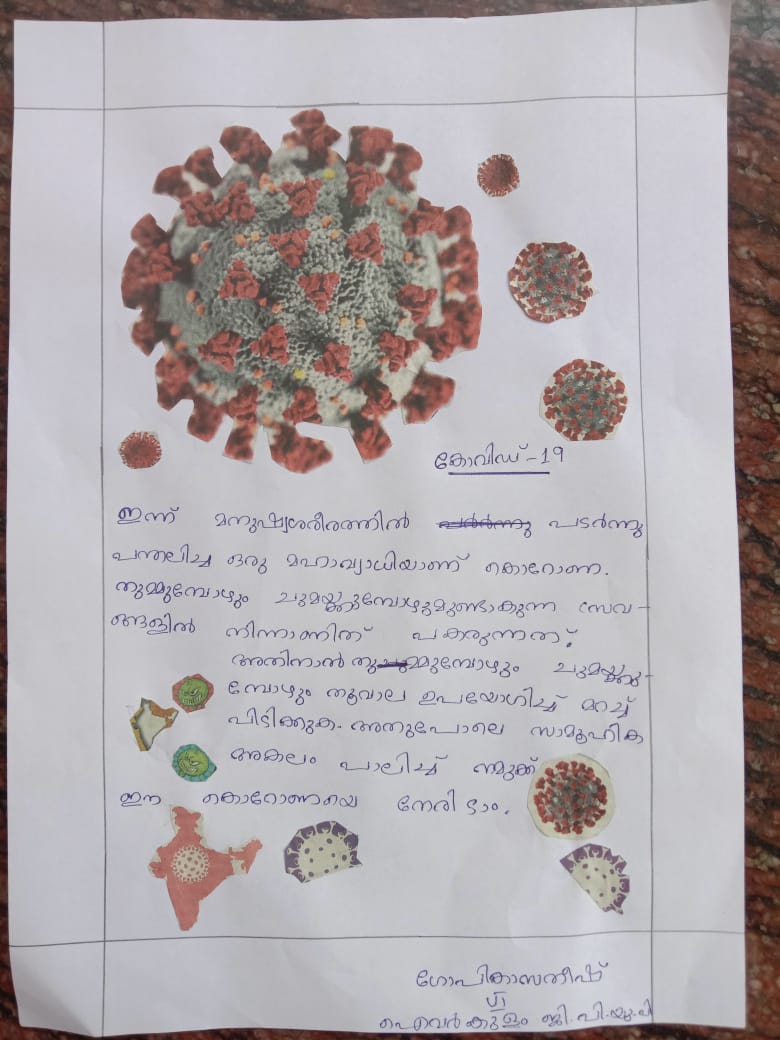 കോവിഡ് -19
ഇന്ന് മനുഷ്യശരീരത്തിൽ പടർന്നു
പന്തലിച്ച ഒരു മഹാവ്യാധിയാണ് കൊറോണ.
തുമ്മുമ്പോഴും ചുമയ്ക്കുമ്പോഴുമുണ്ടാകുന്ന സേവ-
ങ്ങളിൽ നിന്നാണിത് പകരുന്നത്.
അതിനാൽ തുമ്മുമ്പോഴും ചുമയ്ക്കു-
മ്പോഴും തൂവാല ഉപയോഗിച്ച് മറച്ച്
പിടിക്കുക. അതുപോലെ സാമൂഹിക
അകലം പാലിച്ച് നമുക്ക്
ഈ കൊറോണയെ നേരിടാം.
ഗോപികാസതീഷ്
VI
ഐവർകുളം ജി.പി.യു.പി